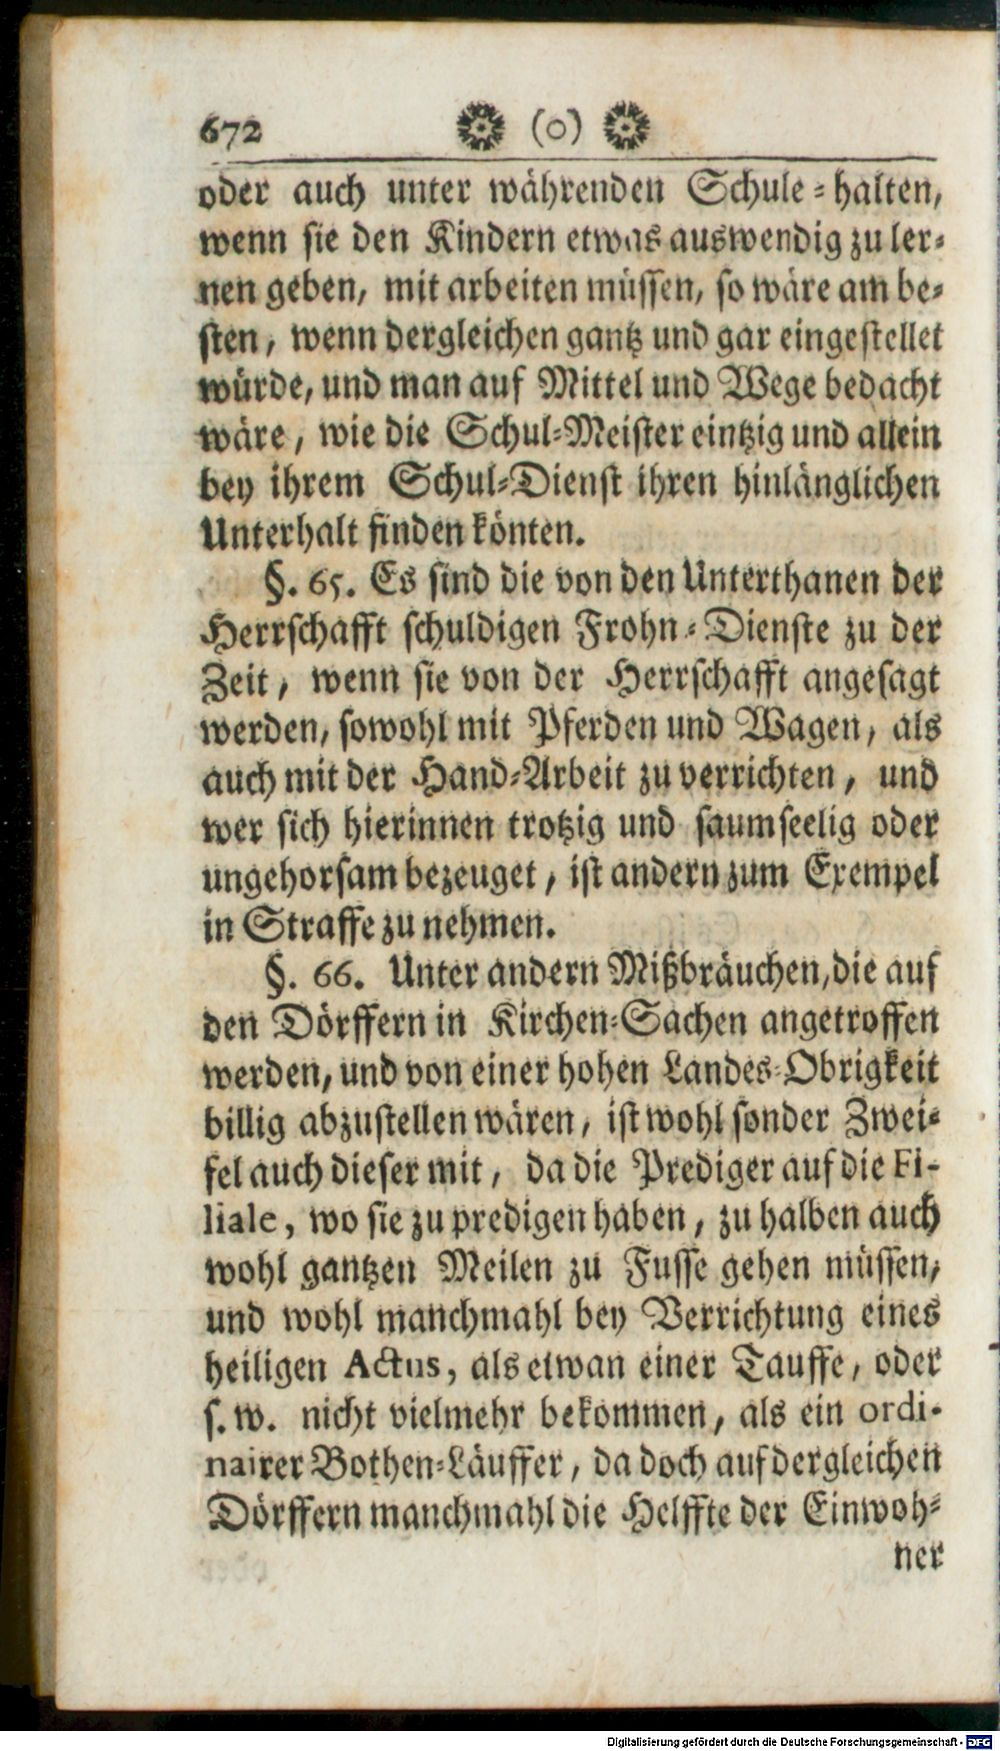 672 (o)
oder auch unter währenden Schule-halten,
wenn sie den Kindern etwas auswendig zu ler-
nen geben, mit arbeiten müssen, so wäre am be-
sten, wenn dergleichen gantz und gar eingestellet
würde, und man auf Mittel und Wege bedacht
wäre, wie die Schul-Meister eintzig und allein
bey ihrem Schul-Dienst ihren hinlänglichen
Unterhalt finden könten.
§. 65. Es sind die von den Unterthanen der
Herrschafft schuldigen Frohn-Dienste zu der
Zeit, wenn sie von der Herrschafft angesagt
werden, sowohl mit Pferden und Wagen, als
auch mit der Hand-Arbeit zu verrichten, und
wer sich hierinnen trotzig und saumseelig oder
ungehorsam bezeuget, ist andern zum Exempel
in Straffe zu nehmen.
§. 66. Unter andern Mißbräuchen, die auf
den Dörffern in Kirchen-Sachen angetroffen
werden, und von einer hohen Landes-Obrigkeit
billig abzustellen wären, ist wohl sonder Zwei-
fel auch dieser mit, da die Prediger auf die Fi-
liale, wo sie zu predigen haben, zu halben auch
wohl gantzen Meilen zu Fusse gehen müssen,
und wohl manchmahl bey Verrichtung eines
heiligen Actus, als etwan einer Tauffe, oder
s. w. nicht vielmehr bekommen, als ein ordi-
nairer Bothen-Läuffer, da doch auf dergleichen
Dörffern manchmahl die Helffte der Einwoh-
ner
Digitalisierung gefördert durch die Deutsche Forschungsgemeinschaft - DFG